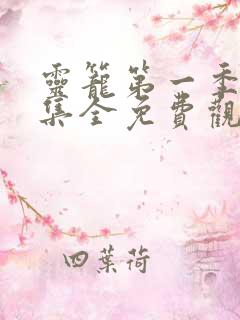 靈籠第一季
集全免費觀
四葉荷